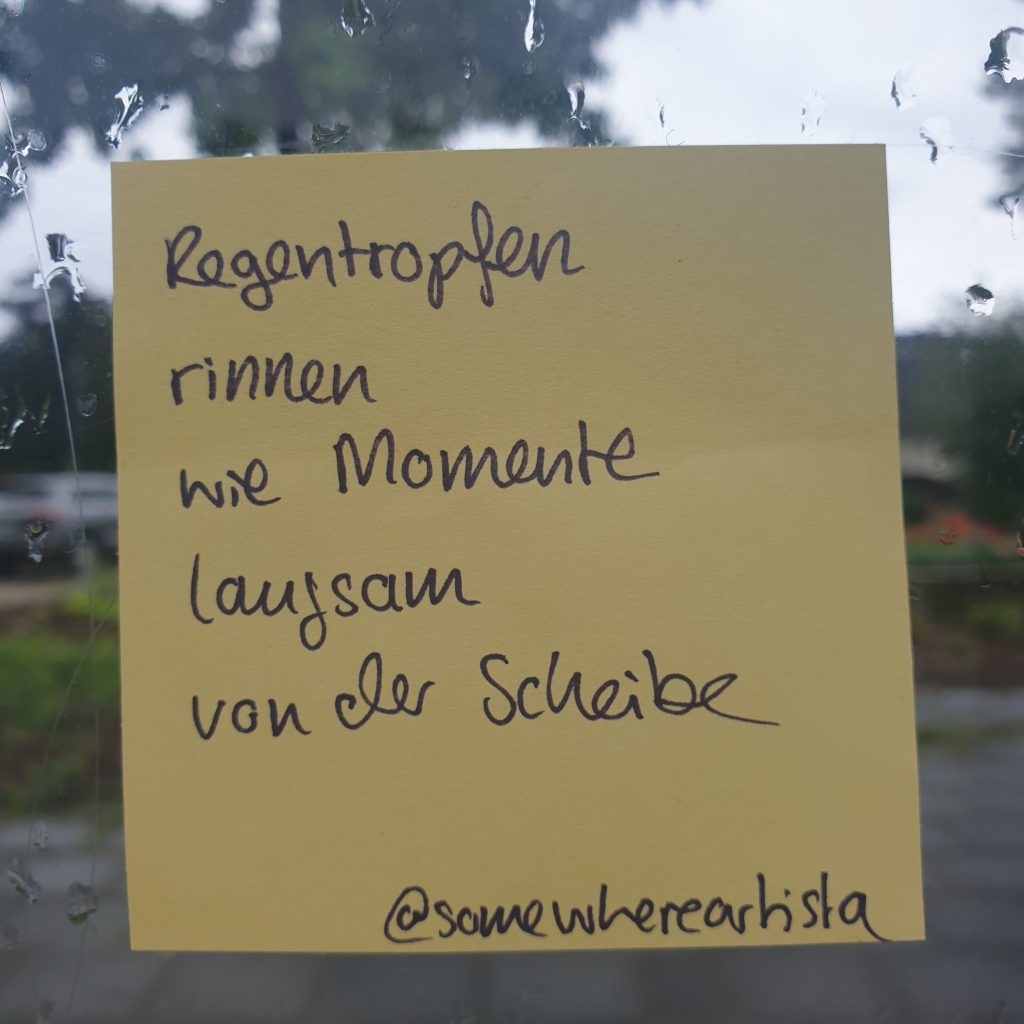 Regentropfen
rinnen
wie Momente
langsam
von der Scheibe
@somewhereartista